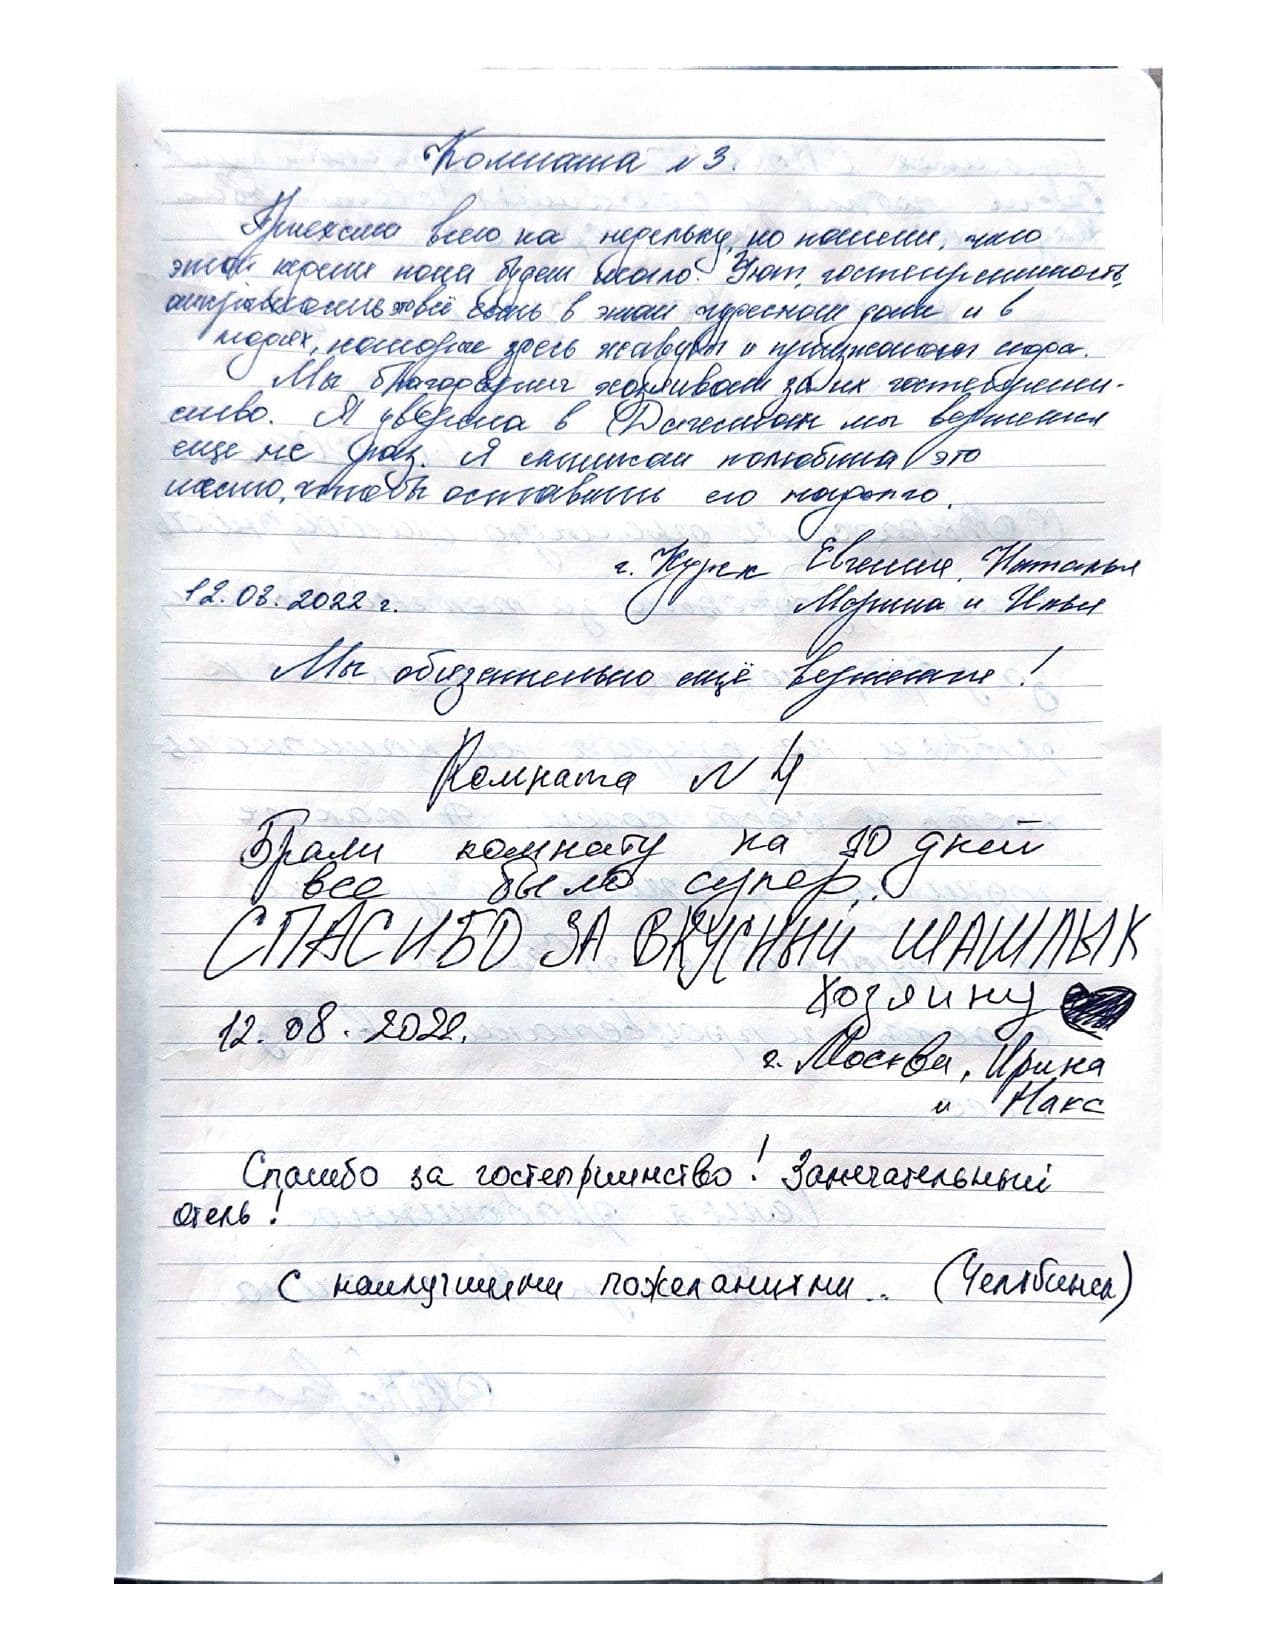 Комната № 3.
Приехали всего на недельку, но поняли, что
этой недели нам будет мало. Уют, гостеприимность,
открытость это всё есть в этом чудесном доме и в
людях, которые здесь живут и
Мы благодарим хозяевам за их гостеприим-
ство. Я уверена в Дагестан мы вернемся
еще не раз. Я слишком полюбила это
место, чтобы оставить его надолго.
г. Курск Евгения, Наталья
12.08.2022 г. Марина и Илья
Мы обязательно ещё вернемся!
Комната № 4
Брали комнату на 10 дней
все было супер.
СПАСИБО ЗА ВКУСНЫЙ ШАШЛЫК
Хозяину
12.08.2022.
г. Москва, Ирина
и Макс
Спасибо за гостеприимство! Замечательный
отель!
С наилучшими пожеланиями.. (Челябинск)